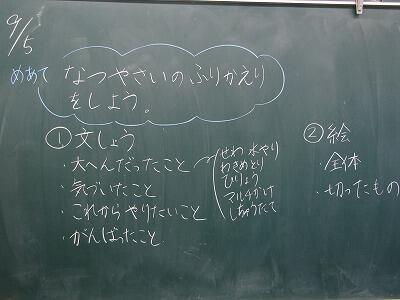 9/5
めあて
なつやさいのふりかえり
をしよう。
①文しょう
・大へんだったこと
・気づいたこと
・これからやりたいこと
・がんばったこと
せわ 水やり
わきめとり
ひりょう
マルチがけ
しちゅうたて
②絵
・全体
・切ったもの